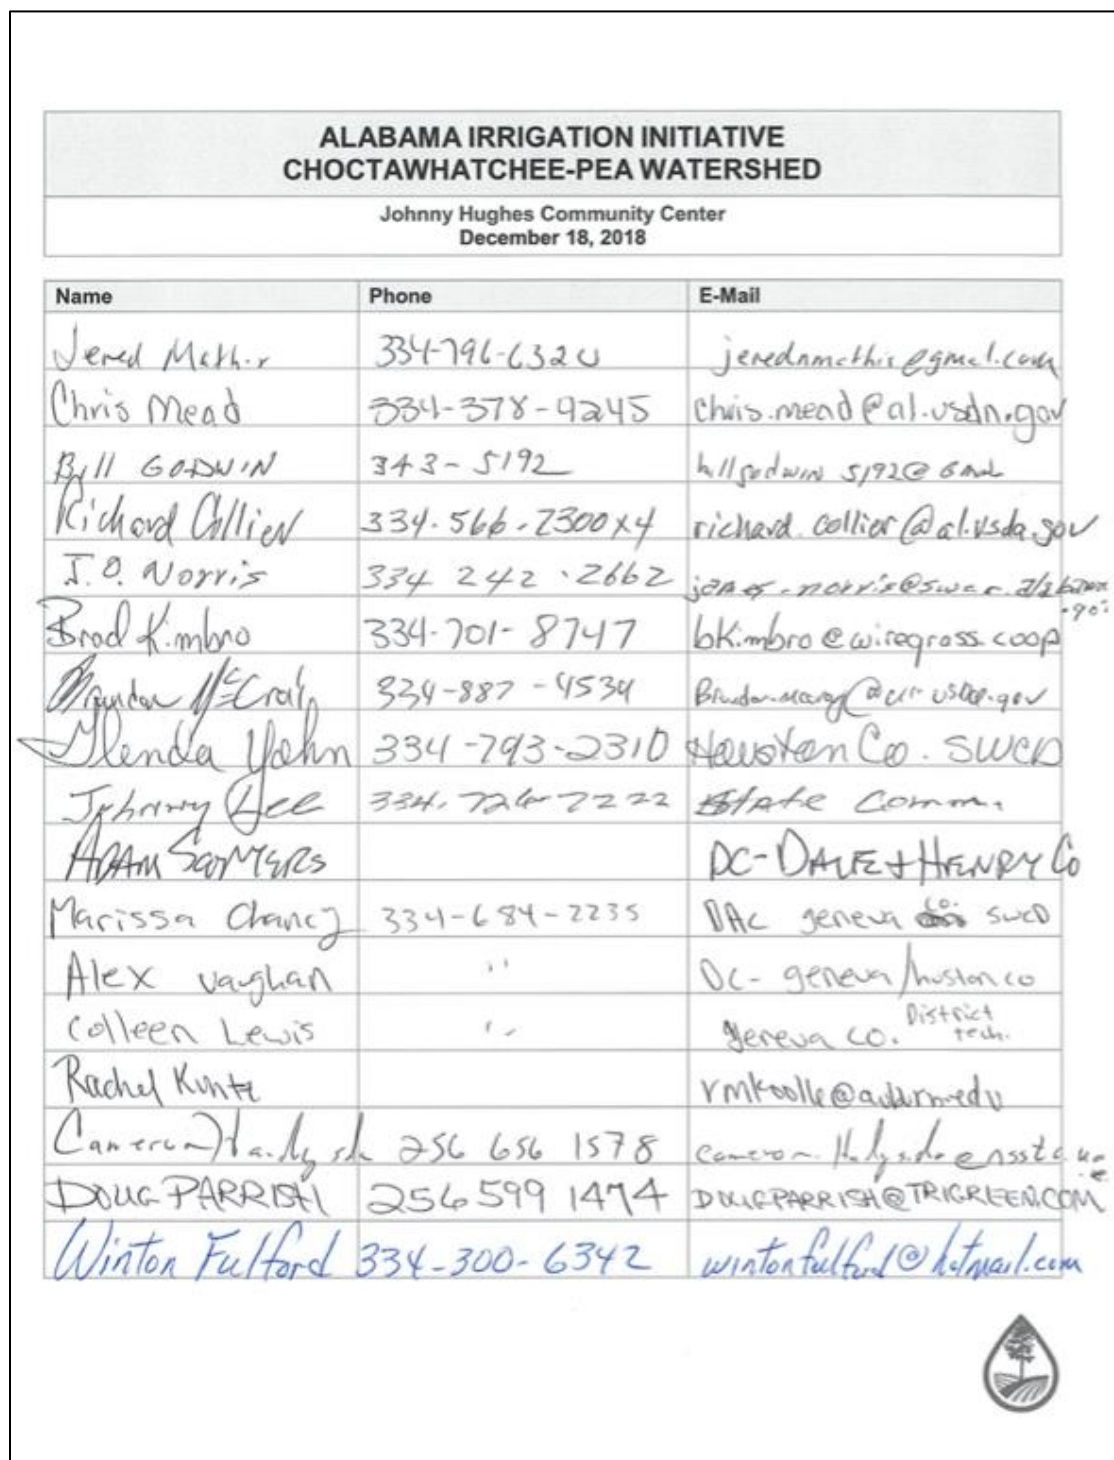 ALABAMA IRRIGATION INITIATIVE
CHOCTAWHATCHEE-PEA WATERSHED
Johnny Hughes Community Center
December 18, 2018
Name Phone E-Mail
Jered Mathis 334-796-6320 jerednmathis@gmail.com
Chris Mead 334-378-9245 chris.mead@al.usdn.gov
Bill GODWIN 343-5192 billgodwin 5192@Gmail
Richard Collier 334.566.2300x4 richard.collier@al.usda.gov
J.O. Norris 334 242.2662
Brad Kimbro 334-701-8747 bkimbro@wiregrass.coop
334-887-4534
Glenda Yohn 334-793-2310 Houston Co. SWCD
Johnny Lee 334.726-7222 State Comm.
ADAM DC-DALE + HENRY Co
Marissa Chancy 334-684-2235 DAC geneva co. SWCD
Alex Vaughan '' DC- geneva/huston co
Colleen Lewis '' geneva co. District tech.
Rachel Kuntz
Cameron 256 656 1578
DOUG PARRISH 256 599 1474 DOUGPARRISH@TRIGREEN.COM
Winton Fulford 334-300-6342 wintonfulford@hotmail.com